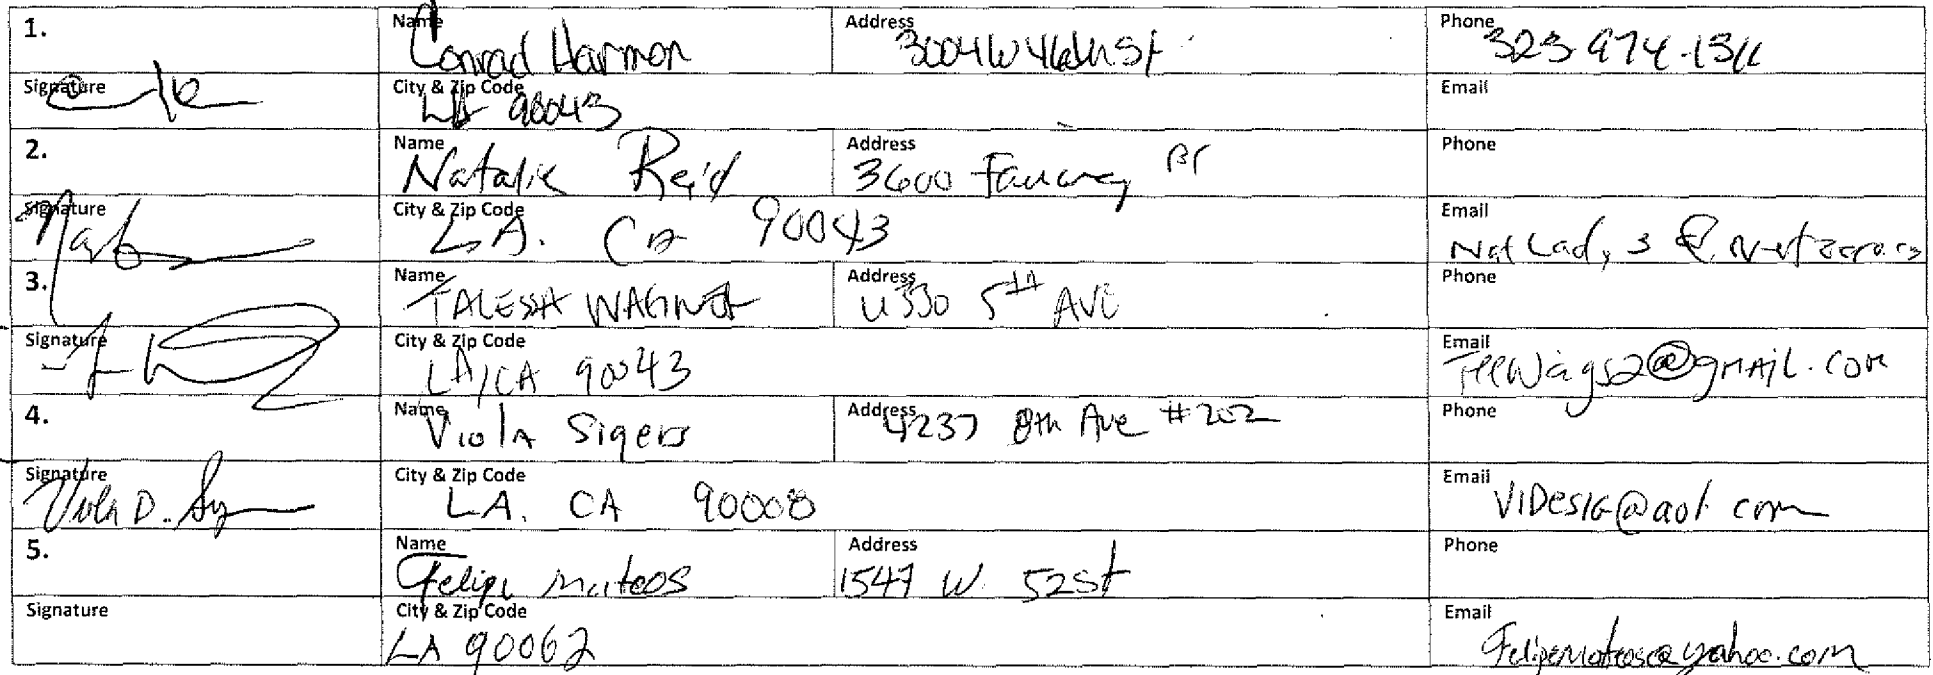 1. Name Conrad Harmon Address 3004 W 46th St Phone 323-974-1311
Signature City & Zip Code LA 90043 Email
2. Name Natalie Reid Address 3600 Phone
Signature City & Zip Code L.A. Ca 90043 Email
3. Name TALESSA WAGNER Address 5th AVE Phone
Signature City & Zip Code LA, CA 90043 Email Teewags2@gmail.com
4. Name Viola Sigers Address 4237 8th Ave #202 Phone
Signature Viola D. City & Zip Code LA. CA 90008 Email VIDesig@aol.com
5. Name Felipe Mateos Address 1547 W. 52st Phone
Signature City & Zip Code LA 90062 Email Felipemateos@yahoo.com